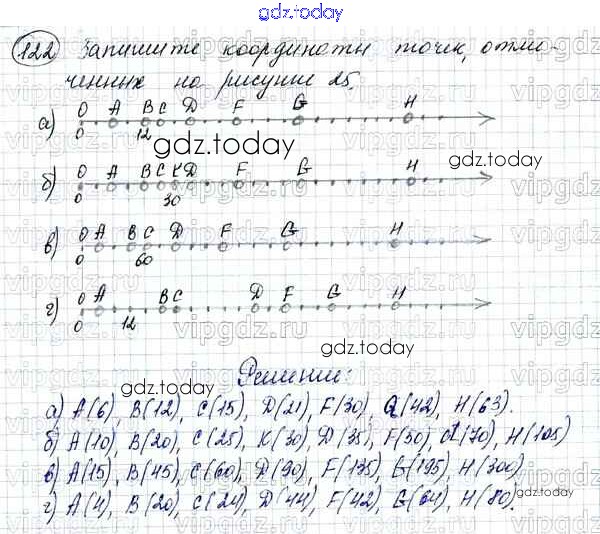 gdz.today
122 Запишите координаты точек, отме-
ченных на рисунке 25.
а) O A B C D F G H
0 12
gdz.today
gdz.today
б) O A B C K D F G H
0 30
в) O A B C D F G H
0 60
г) O A B C D F G H
0 12
gdz.today
Решение:
gdz.today
а) A(6), B(12), C(15), D(21), F(30), G(42), H(63).
б) A(10), B(20), C(25), K(30), D(35), F(50), G(70), H(105)
в) A(15), B(45), C(60), D(90), F(135), G(195), H(300).
г) A(4), B(20), C(24), D(44), F(42), G(64), H(80).
gdz.today